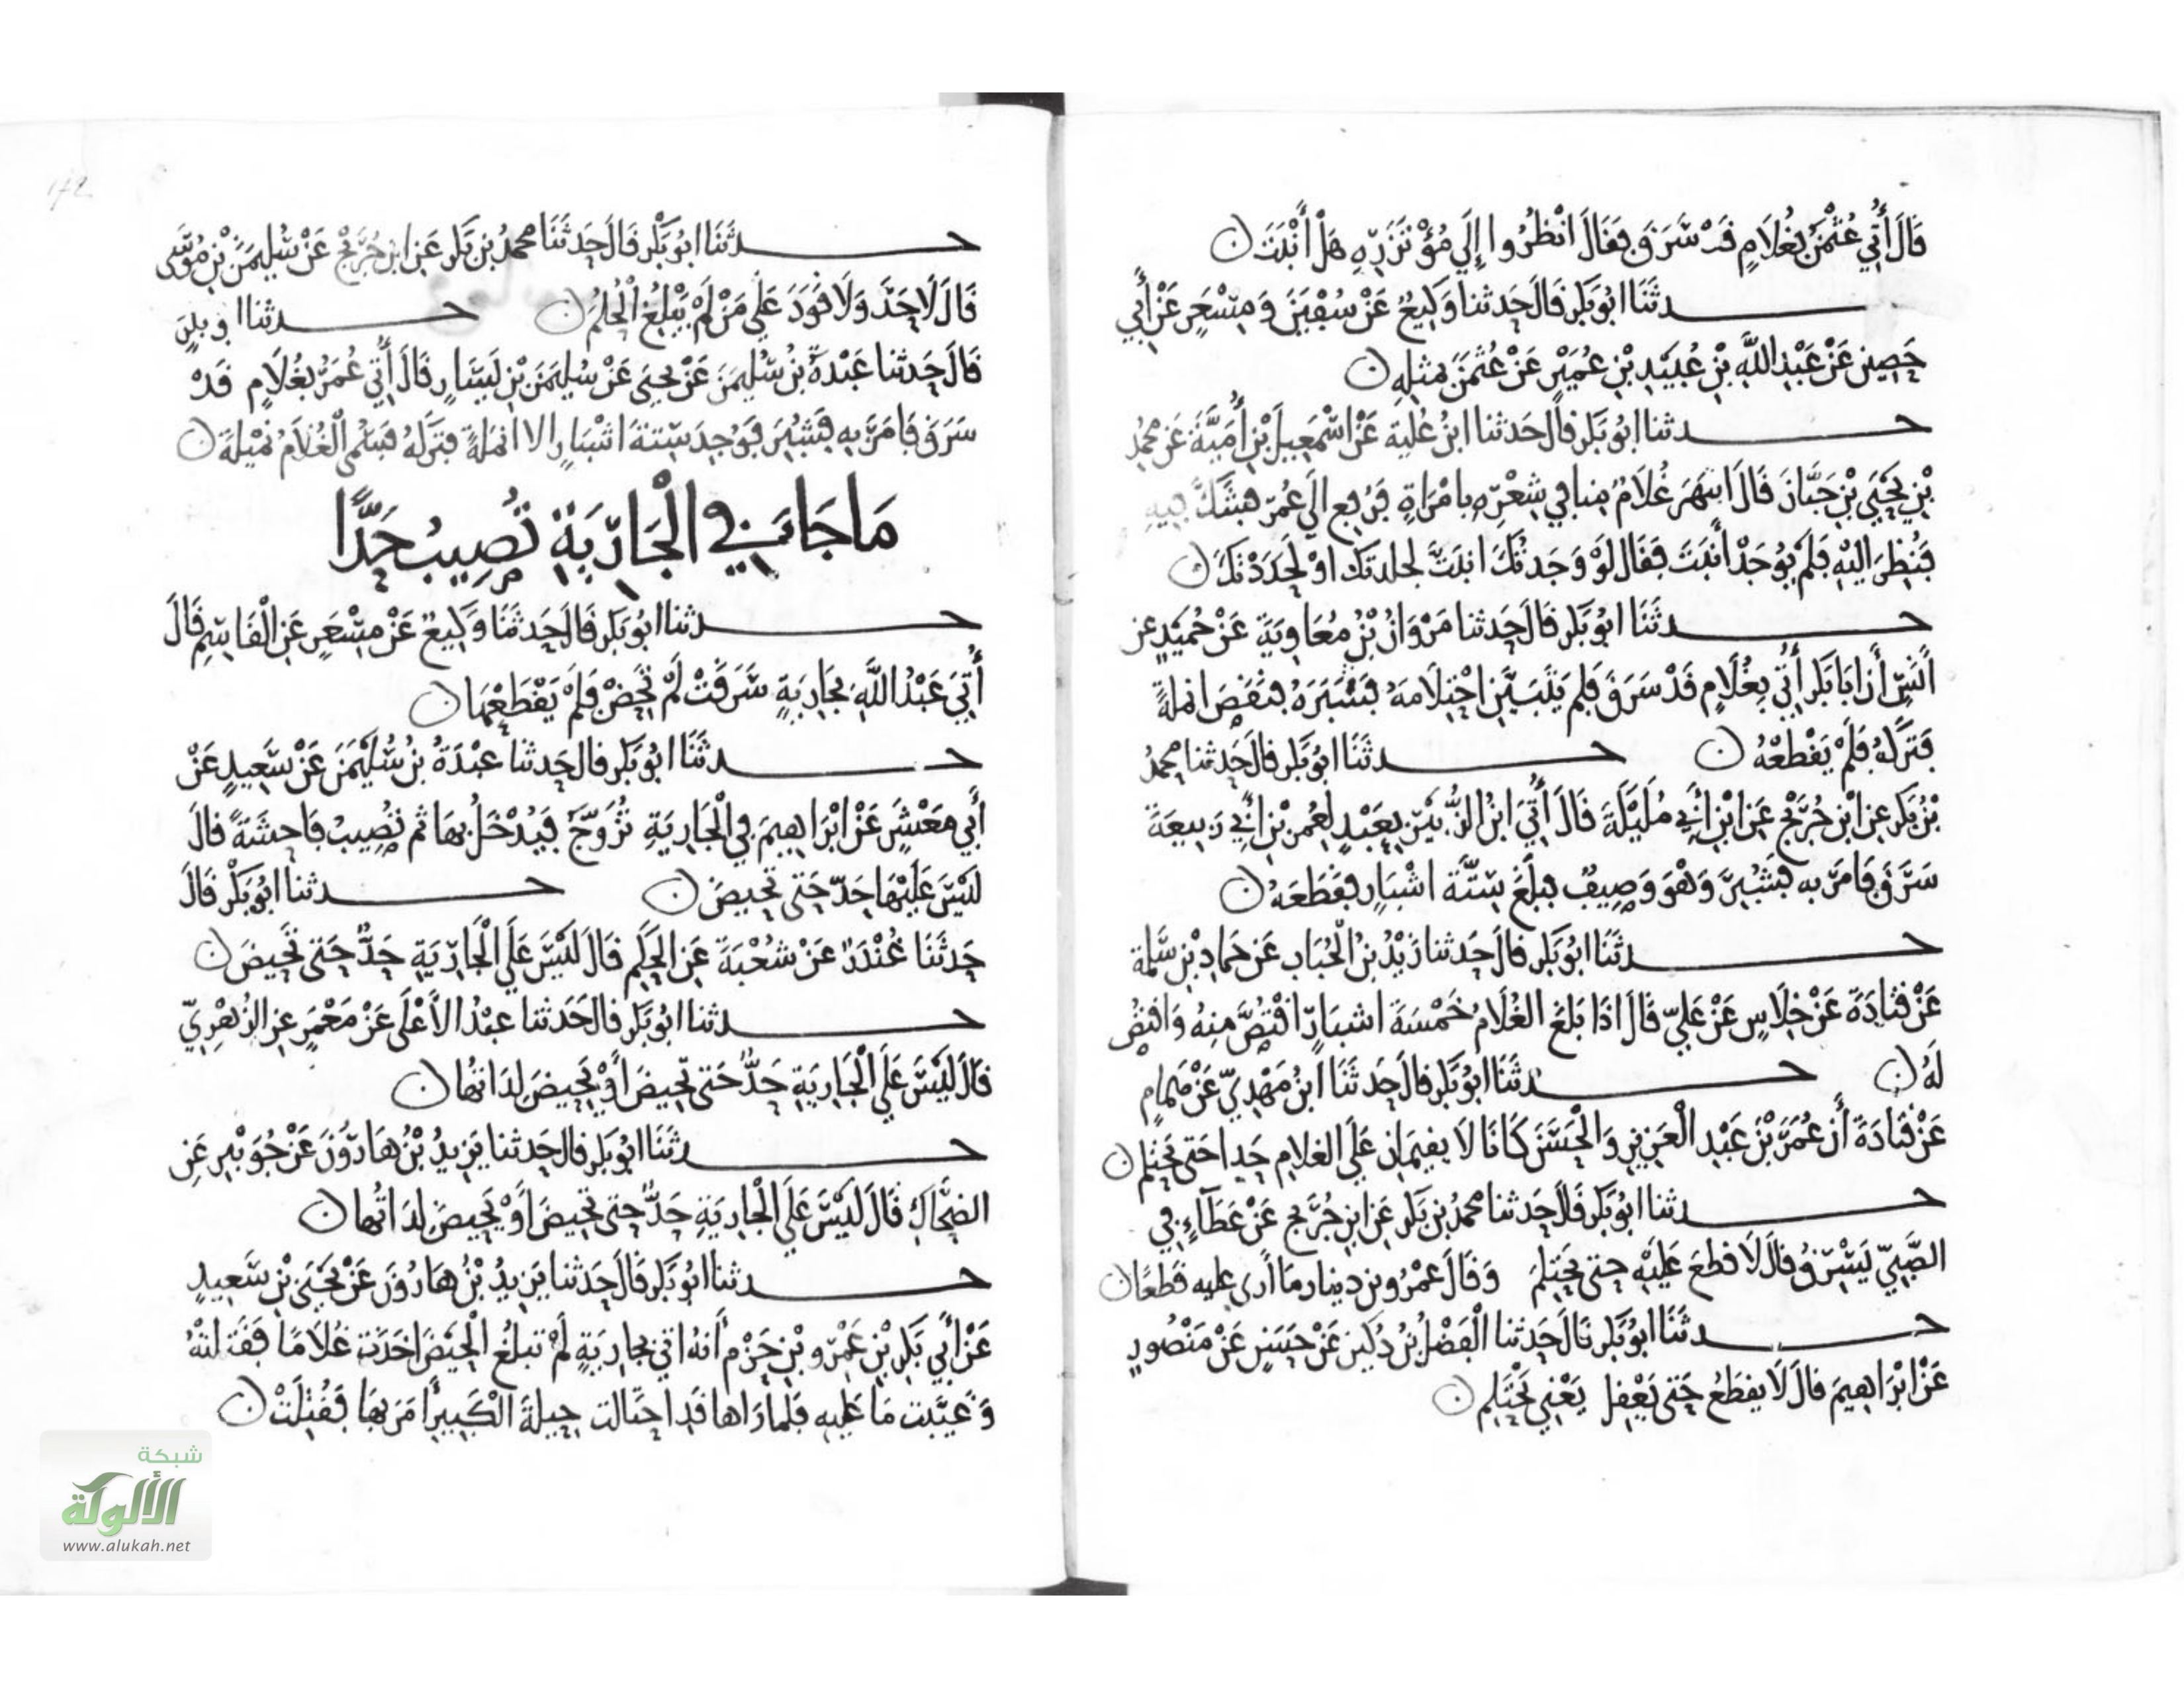 قَالَ أُتِيَ عُثْمَنُ بِغُلَامٍ قَدْ سَرَقَ فَقَالَ انْظُرُوا إِلَى مُؤْتَزَرِهِ هَلْ أَنْبَتَ ن
حدثَنَا ابُو بَكْرٍ قَالَ حَدثنا وَكِيعٌ عَنْ سُفْيَنَ وَمِسْعَرٍ عَنْ أَبِي
حَصِينٍ عَنْ عَبْدِ اللَّهِ بْنِ عُبَيْدِ بْنِ عُمَيْرٍ عَنْ عُثمَنَ بمثلِهِ ن
حدثنا ابُو بَكْرٍ قَالَ حَدثنا ابنُ عُلَيَةَ عَنْ اسْمَعِيلَ بْنِ أُمَيَّةَ عَن محمدِ
بْنِ يَحْيَى بْنِ حَبَّانَ قَالَ ابتَهَرَ غُلَامٌ مِنا فِي شِعْرِهِ بِامْرَاةٍ فَرُفِعَ الَى عُمَرَ فَشَكَّ فِيهِ
فَنُظِرَ الَيْهِ فَلَمْ يُوجَدْ أَنْبَتَ فَقَالَ لَوْ وَجَدتُكَ انبَتَّ لجلدتكَ اوْ لَحَدَدْتُكَ ن
حدثَنَا ابُو بَكْرٍ قَالَ حَدثنا مَرْوَانُ بْنُ مُعَاوِيَةَ عَنْ حُمَيْدٍ عن
أَنَسٍ أَنَّ ابَا بَكْرٍ أُتِيَ بِغُلَامٍ قَدْ سَرَقَ فَلَم يَتَبَيَّنِ احْتِلَامهُ فَشَبَرَهُ فَنَقَصَ انملةً
فَتَرَكَهُ فَلَمْ يَقْطَعْهُ ن حدثَنَا ابُو بَكْرٍ قَالَ حَدثنا محمدُ
بْنُ بَكْرٍ عن ابْنِ جُرَيْجٍ عَنِ ابْنِ أَبِي مُلَيْكَةَ قَالَ أُتِيَ ابْنُ الزُّبَيْرِ بِعَبْدٍ لِعُمَرَ بْنِ أَبِي رَبِيعَةَ
سَرَقَ فَامَرَ به فَشُبِرَ وَهْوَ وَصِيفٌ فَبَلَغَ سِتَّةَ اشْبَارٍ فقَطَعَهُ ن
حدثَنَا ابُو بَكْرٍ قَالَ حَدثنا زَيْدُ بنُ الْحُبَابِ عَن حَمادِ بْنِ سَلَمة
عَنْ قَتَادَةَ عَنْ خِلَاسٍ عَنْ عَليٍّ قَالَ اذَا بَلَغَ الغُلَامُ خَمْسَةَ اشبَارٍ اقْتُصَّ مِنهُ وَاقتُصَّ
لَهُ ن حدثَنَا ابُو بَكْرٍ قَالَ حَدثَنَا ابنُ مَهْدِيٍّ عَنْ هَمامٍ
عَنْ قَتَادَةَ أَن عُمَرَ بْنَ عَبْدِ الْعَزِيزِ وَالْحَسَنَ كَانَا لَا يقيمَانِ عَلَى الغلامِ حَدا حَتى يَحْتَلِم ن
حدثنا ابُو بَكْرٍ قَالَ حَدثنا محمدُ بنُ بَكْرٍ عَنِ ابنِ جُرَيجٍ عَنْ عَطَاءٍ فِي
الصَّبِيِّ يَسْرِقُ قَالَ لَا قطعَ عَلَيْهِ حتى يَحْتَلِمَ وَقَالَ عَمْرُو بن دينارٍ مَا أَرى عليه قَطعًا ن
حدثَنَا ابُو بَكْرٍ قَالَ حَدثنا الْفَضْلُ بْنُ دُكَينٍ عَنْ حَسَنٍ عَنْ مَنْصُورٍ
عَنْ ابْرَاهِيمَ قَالَ لَا يقطعُ حَتى يَعْقِل يَعْنِي يَحْتَلِم ن
حدثَنَا ابُو بَكْرٍ قَالَ حَدثَنَا محمدُ بْنُ بَكْرٍ عَنِ ابنِ جُرَيْجٍ عَنْ سُلَيمَنَ بْنِ مُوسَى
قَالَ لَا حَدَّ وَلَا قَوَدَ عَلَى مَنْ لَمْ يَبْلُغِ الْحُلُمَ ن حدثنا ابو بكرٍ
قَالَ حَدثنا عَبْدَةُ بْنُ سُلَيمَنَ عَنْ يحيَى عَنْ سُلَيمَنَ بْنِ يَسَارٍ قَالَ أُتِيَ عُمَرُ بِغُلَامٍ قَدْ
سَرَقَ فَامَرَ بهِ فَشُبِرَ فَوُجِدَ سِتةَ اشْبَارٍ الا انملةً فتركهُ فَسُمي الْغُلَامُ نُمَيْلَةَ ن
مَا جَاءَ فِي الْجَارِيَةِ تُصِيبُ حَدًّا
حدثنا ابُو بَكْرٍ قَالَ حَدثَنَا وَكِيعٌ عَنْ مِسْعَرٍ عَنِ الْقَاسِمِ قَالَ
أُتِيَ عَبْدُ اللَّهِ بجَارِيَةٍ سَرَقَتْ لَمْ تَحِضْ فَلَمْ يَقْطَعْهَا ن
حدثَنَا ابُو بَكْرٍ قال حَدثنا عَبْدَةُ بْنُ سُلَيْمَنَ عَنْ سَعِيدٍ عَنْ
أَبِي مَعْشَرٍ عَنْ ابْرَاهِيمَ فِي الْجَارِيَةِ تُزَوَّجُ فَيُدْخَلُ بِهَا ثم تُصِيبُ فَاحِشَةً قالَ
لَيْسَ عَلَيْهَا حَدٌّ حَتى تَحِيضَ ن حدثنا ابُو بَكْرٍ قَالَ
حَدثَنَا غُنْدَرٌ عَنْ شُعْبَةَ عَنِ الحَكَمِ قَالَ لَيْسَ عَلَى الْجَارِيَةِ حَدٌّ حَتى تَحِيضَ ن
حدثنا ابُو بَكْرٍ قال حَدثنا عبْدُ الاَعْلَى عَنْ مَعْمَرٍ عنِ الزُهْرِيِّ
قَالَ لَيْسَ عَلَى الْجَارِيَةِ حَدٌّ حَتى تَحِيضَ أَوْ يَحِيضَ لِدَاتُهَا ن
حدثَنَا ابُو بَكْرٍ قال حَدثنا يَزِيدُ بْنُ هَارُونَ عَنْ جُوَيْبِرٍ عَنِ
الضَّحَّاكِ قَالَ لَيْسَ عَلَى الْجَارِيَةِ حَدٌّ حَتى تَحِيضَ اَوْ يَحِيضَ لِدَاتُها ن
حدثنا ابُو بَكْرٍ قَالَ حَدثنا يَزِيدُ بْنُ هَارُونَ عَنْ يَحْيَى بْنِ سَعِيدٍ
عَنْ أَبِي بَكْرِ بْنِ عَمْرِو بْنِ حَزْمٍ أَنهُ اتي بجارِيَةٍ لَمْ تَبلُغِ الْحَيْضَ اخَذَتْ غُلَامًا فَقَتَلَتْهُ
وَغَيَّبت مَا عَلَيهِ فَلَما رَاها قَدِ احتَالت حِيلةَ الْكَبِيرِ أَمَرَ بهَا فَقُتِلَتْ ن
شبكة
الألوكة
www.alukah.net